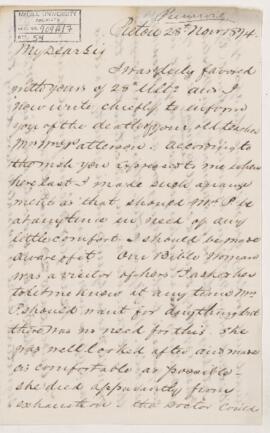 McGILL UNIVERSITY
ARCHIVES
ACC. NO. 909A/7
REF. 54
Pictou 28th Novr 1874.
My Dear Sir
I was duly favored
with yours of 28th Ulto and
I now write chiefly to inform
you of the death of your old teacher
Mrs McPatterson. According
to the wish you expressed to me when
here last I made such arrange
ment as that, should Mrs P be
at any time in need of any
little comfort I should be made
aware of it. Our Bible Woman
was a visitor of hers I asked her
to let me know if any time Mrs
P should want for anything but
there was no need for this. She
was well looked after and made
as comfortable as possible
she died apparently from
exhaustion & the Doctor could